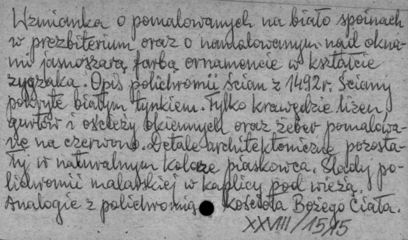 Wzmianka o pomalowanych na biało spoinach
w prezbiterium oraz o namalowanym nad okna-
mi jasnoszarą farbą ornamencie w kształcie
zygzaka. Opis polichromii ścian z 1492r. Ściany
pokryte białym tynkiem. Tylko krawędzie lizen,
gurtów i ościeży okiennych oraz żeber pomalowa-
ne na czerwono. Detale architektoniczne pozosta-
ły w naturalnym kolorze piaskowca. Ślady po-
lichromii malarskiej w kaplicy pod wieżą.
Analogie z polichromią kościoła Bożego Ciała.
XXVIII/1515